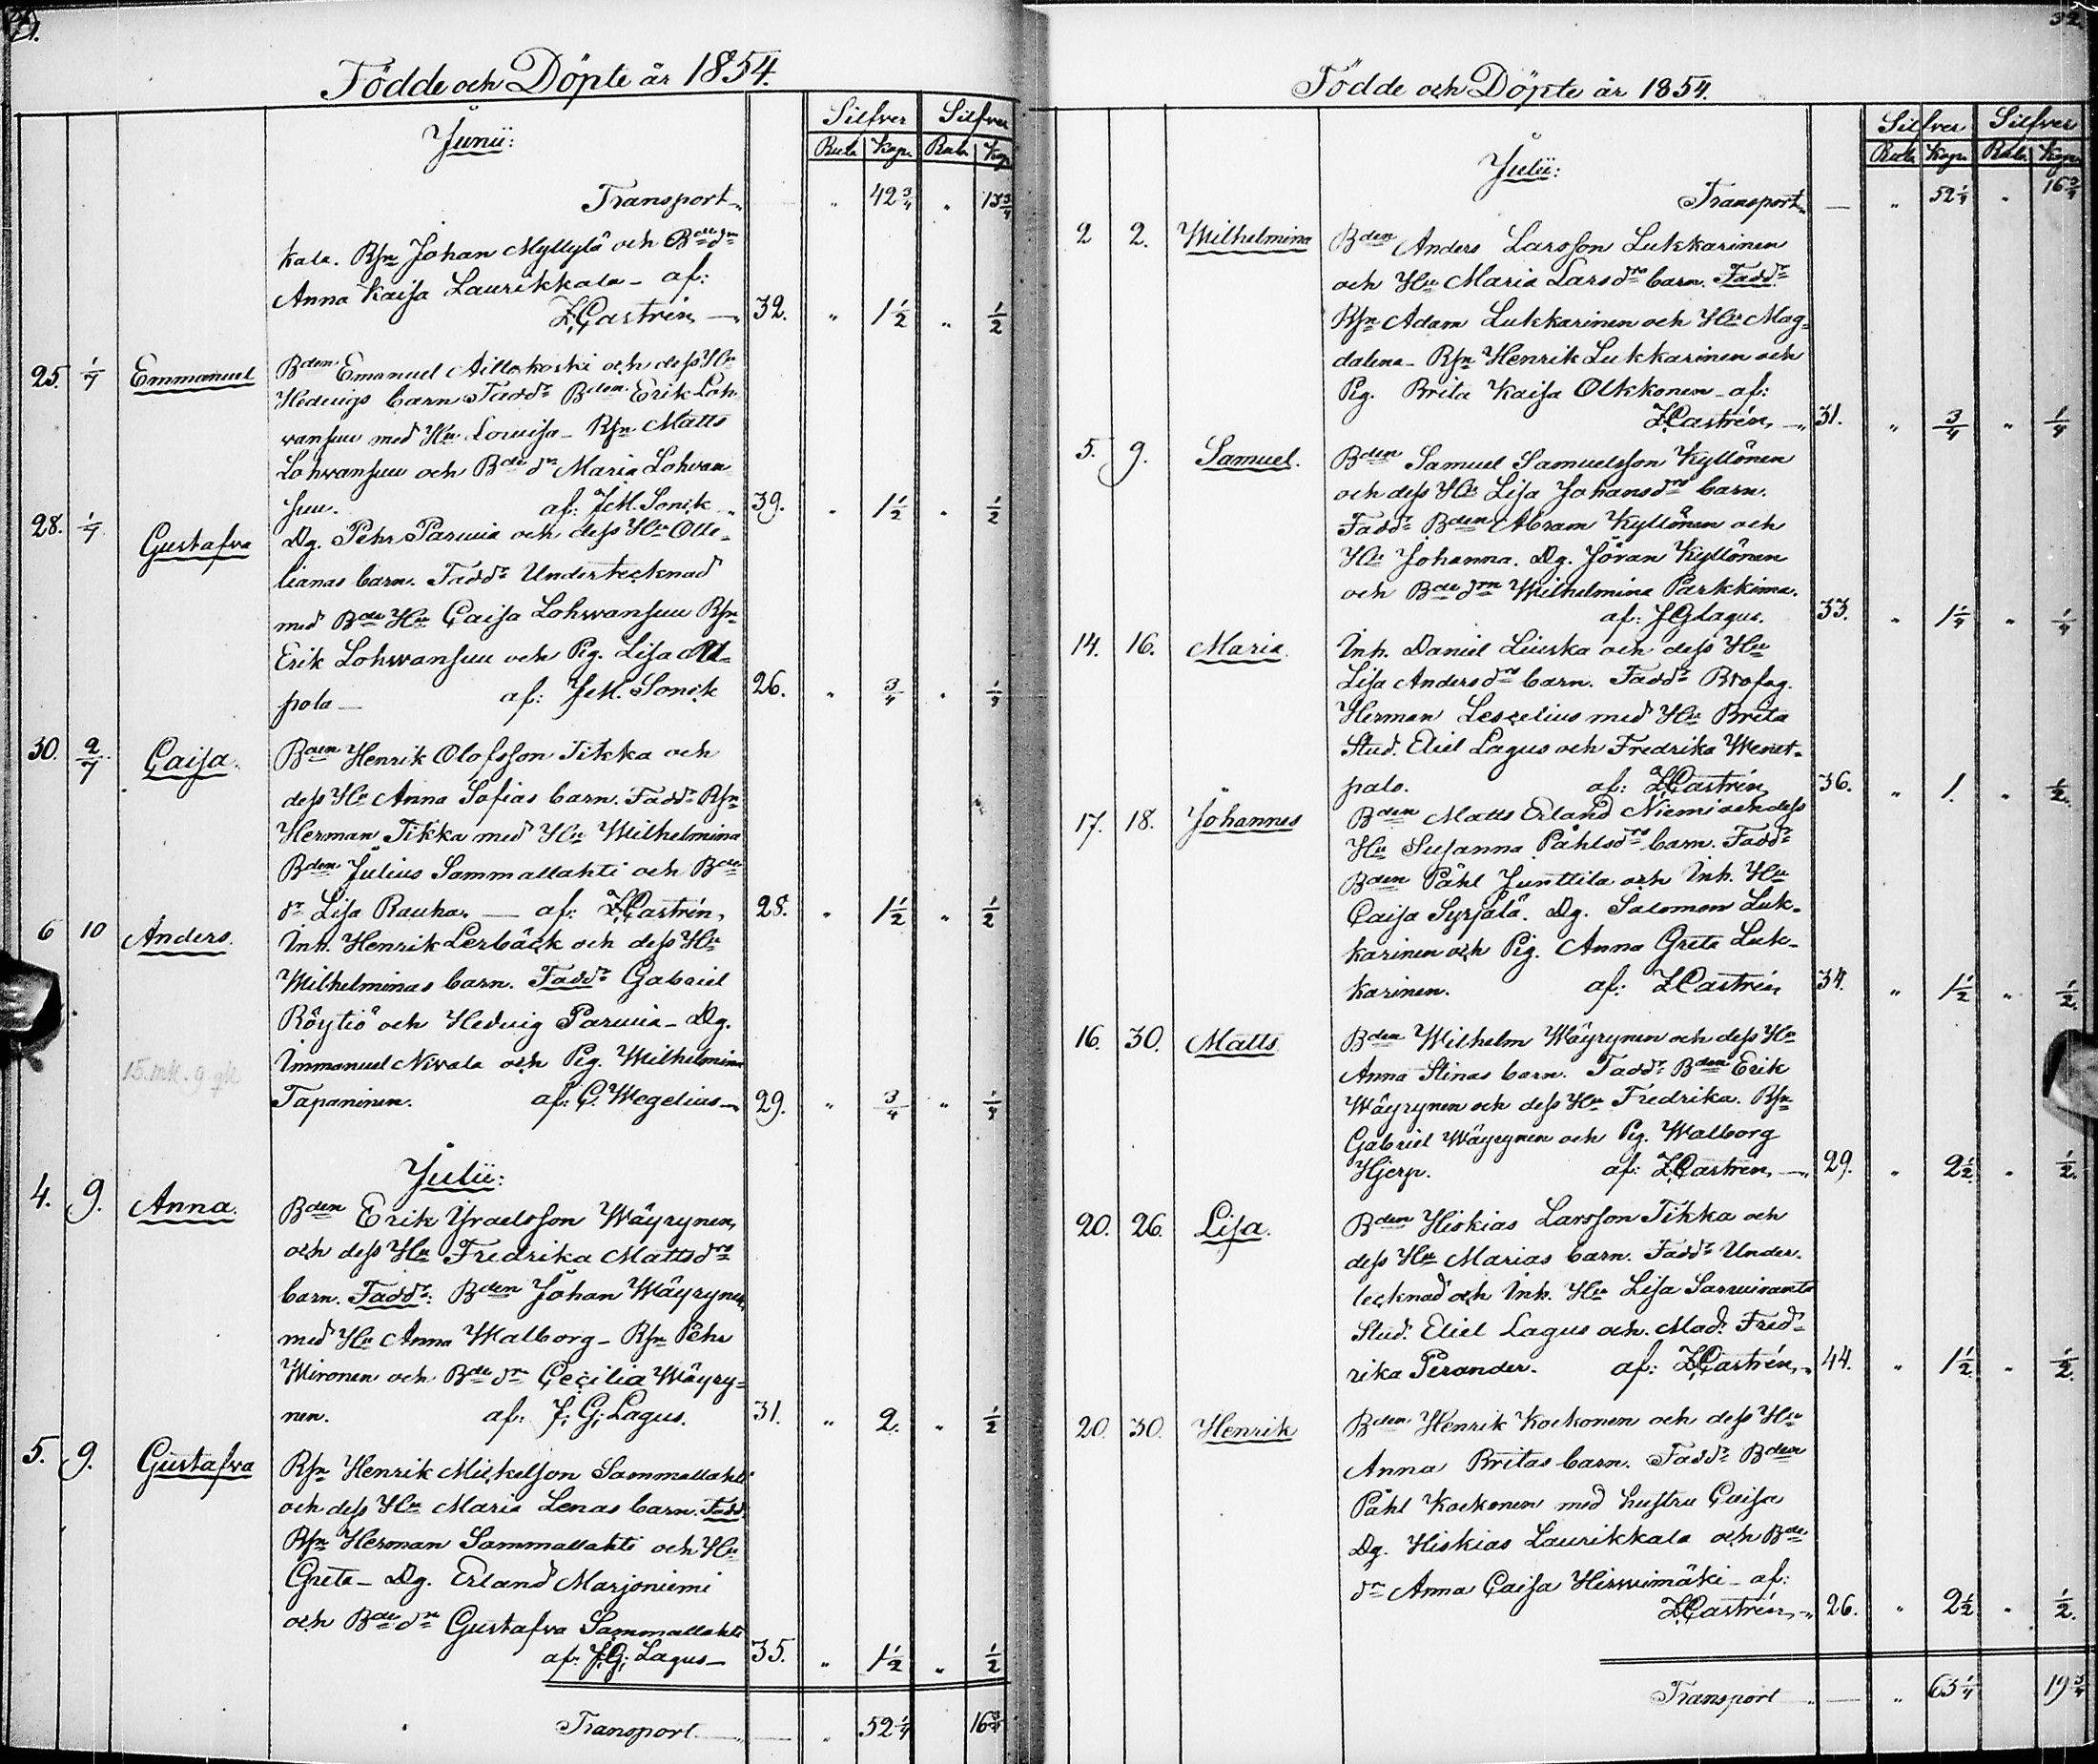 Födde och Döpte år 1854.
Silfver Silfver
Rub. Kop. Rub. Kop.
Junii:
Transport " 42 3/4 " 13 3/4
kala. Bsn Johan Myllylä och Bde dr
Anna Kaisa Laurikkala - af:
Z. Castrén 32. " 1 1/2 " 1/2
25. 1/7 Emmanuel Bden Emanuel Aillokoski och dess Hu
Hedvigs barn. Fadd: Bden Erik Loh-
wansuu med Hu Lowisa - Bsn Matts
Lohwansuu och Bde dr Maria Lohwan
suu. af: J. M. Sonck 39. " 1 1/2 " 1/2
28. 1/7 Gustafva Dg. Pehr Parwia och dess Hu Otte-
lianas barn. Fadd: Undertecknad
med Bde Hu Caisa Lohwansuu Bsn
Erik Lohwansuu och Pig. Lisa Ala-
pola af: J. M. Sonck 26. " 3/4 " 1/4
30. 2/7 Caisa. Bden Henrik Olofsson Tikka och
dess Hu Anna Sofias barn. Fadd: Bsn
Herman Tikka med Hu Wilhelmina
Bden Julius Sammallahti och Bde
dr Lisa Rauha. — af: Z. Castrén, 28. " 1 1/2 " 1/2
6 10 Anders. Inh. Henrik Lerbäck och dess Hu
Wilhelminas barn. Fadd: Gabriel
Röytiö och Hedvig Parwia - Dg.
Immanuel Nivala och Pig. Wilhelmina
15. mk. 9 gk
Tapaninen. af: C. Wegelius 29. " 3/4 " 1/4
Julii:
4. 9. Anna. Bden Erik Israelsson Wäyrynen,
och dess Hu Fredrika Matts drs
barn. Fadd: Bden Johan Wäyrynen,
med Hu Anna Walborg - Bsn Pehr
Mironen och Bde dr Cecilia Wäyry-
nen. af: J. G. Lagus. 31. " 2. " 1/2
5. 9. Gustafva Bsn Henrik Mickelson Sammallahti
och dess Hu Maria Lenas barn. Fadd:
Bsn Herman Sammallahti och Hu
Greta - Dg. Erland Marjoniemi
och Bde dr Gustafva Sammallahti
af: J. G. Lagus - 35. " 1 1/2 " 1/2
Transport " 52 1/4 16 3/4
32.
Födde och Döpte år 1854.
Silfver Silfver
Rub. Kop. Rub. Kop.
Julii:
Transport — " 52 1/4 " 16 3/4
2 2. Wilhelmina Bden Anders Larsson Lukkarinen
och Hu Maria Lars drs barn. Fadd:
Bsn Adam Lukkarinen och Hu Mag-
dalena - Bsn Henrik Lukkarinen och
Pig. Brita Kaisa Olkkonen - af:
Z. Castrén, 31. " 3/4 " 1/4
5. 9. Samuel. Bden Samuel Samuelsson Kyllönen
och dess Hu Lisa Johans drs barn.
Fadd: Bden Abram Kyllönen och
Hu Johanna. Dg. Jöran Kyllönen
och Bde drn Wilhelmina Parkkima.
af: J G Lagus. 33. " 1 1/4 " 1/4
14. 16. Maria. Inh. Daniel Liuska och dess Hu
Lisa Anders drs barn. Fadd: Brofog.
Herman Lescelius med Hu Brita
Stud. Eliel Lagus och Fredrika Wenet-
palo. af: Z. Castrén 36. " 1. " 1/2.
17. 18. Johannes Bden Matts Erland Niemi och dess
Hu Susanna Påhls drs barn. Fadd:
Bden Påhl Junttila och Inh. Hu
Caisa Syrjälä. Dg. Salomon Luk-
karinen och Pig. Anna Greta Luk-
karinen. af: Z. Castrén 34. " 1 1/2 " 1/2.
16. 30. Matts Bden Wilhelm Wäyrynen och dess Hu
Anna Stinas barn. Fadd: Bden Erik
Wäyrynen och dess Hu Fredrika. Bsn
Gabriel Wäyrynen och Pig. Walborg
Hjerp. af: Z. Castrén, 29. " 2 1/2. " 1/2.
20. 26. Lisa. Bden Hiskias Larsson Tikka och
dess Hu Marias barn. Fadd: Under-
tecknad och Inh. Hu Lisa Sarwiranta
Stud. Eliel Lagus och Mad. Fred-
rika Perander. af: Z. Castrén, 44. " 1 1/2 " 1/2.
20. 30. Henrik Bden Henrik Korkonen och dess Hu
Anna Britas barn. Fadd: Bden
Påhl Korkonen med hustru Caisa
Dg. Hiskias Laurikkala och Bde
dr Anna Caisa Hirwimäki - af:
Z. Castrén, 26. " 2 1/2 " 1/2.
Transport — " 63 1/4 19 3/4